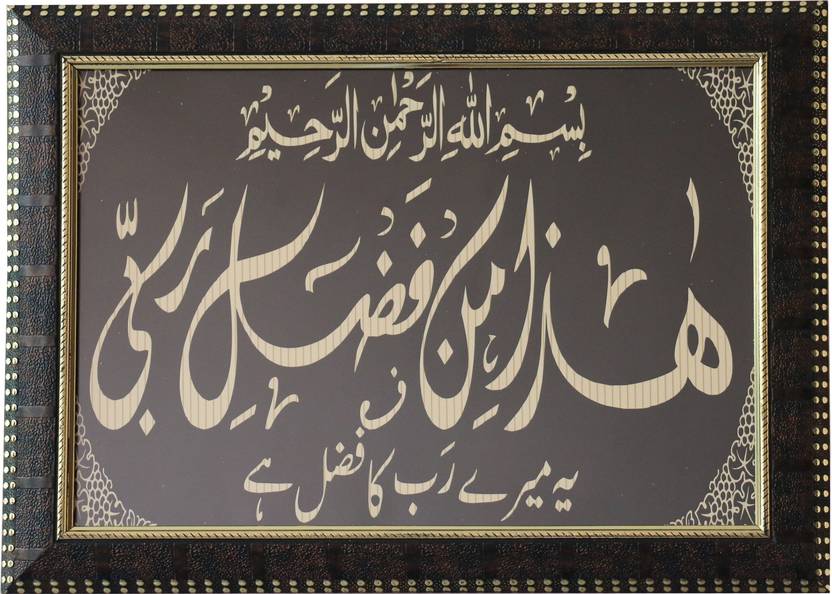 بِسْمِ اللهِ الرَّحْمٰنِ الرَّحِيْمِ
هٰذَا مِنْ فَضْلِ رَبِّي
یہ میرے رَب کا فضل ہے